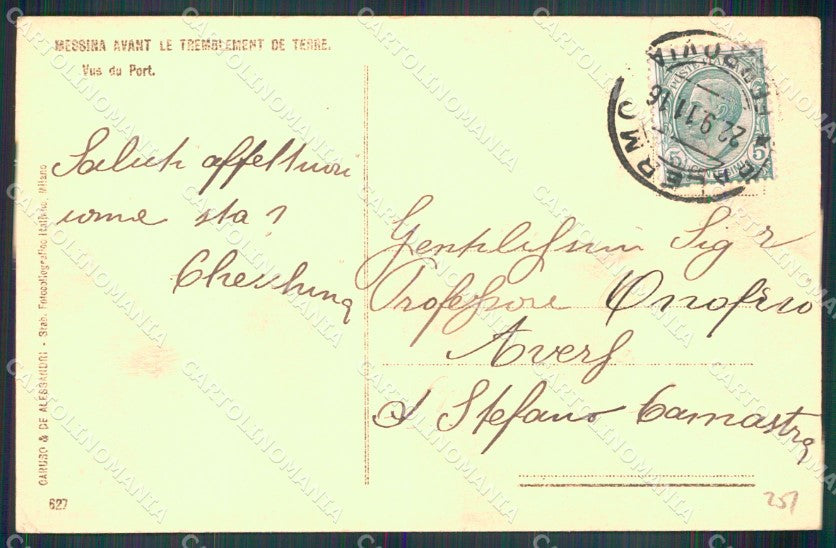 MESSINA AVANT LE TREMBLEMENT DE TERRE.
Vue du Port.
Saluti affettuosi
come sta?
Gentilissimo Sigr
Professore Onofrio
Aversa
S Stefano Camastra
PALERMO FERROVIA
22.9.11 16
CARUSO & DE ALESSANDRI - Stab. Fotocaliografico Italiano, Milano
627
251
CARTOLINOMANIA